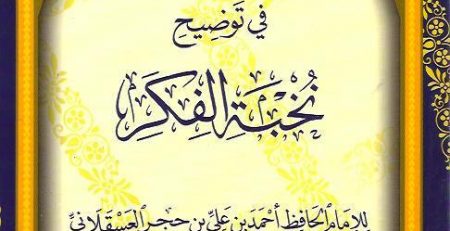 في تَوضِيحِ
نُخْبَةِ الفِكَرِ
للإِمَامِ الحَافِظِ أَحْمَدَ بنِ عَلِيّ بنِ حجرٍ العَسْقَلَانِيّ